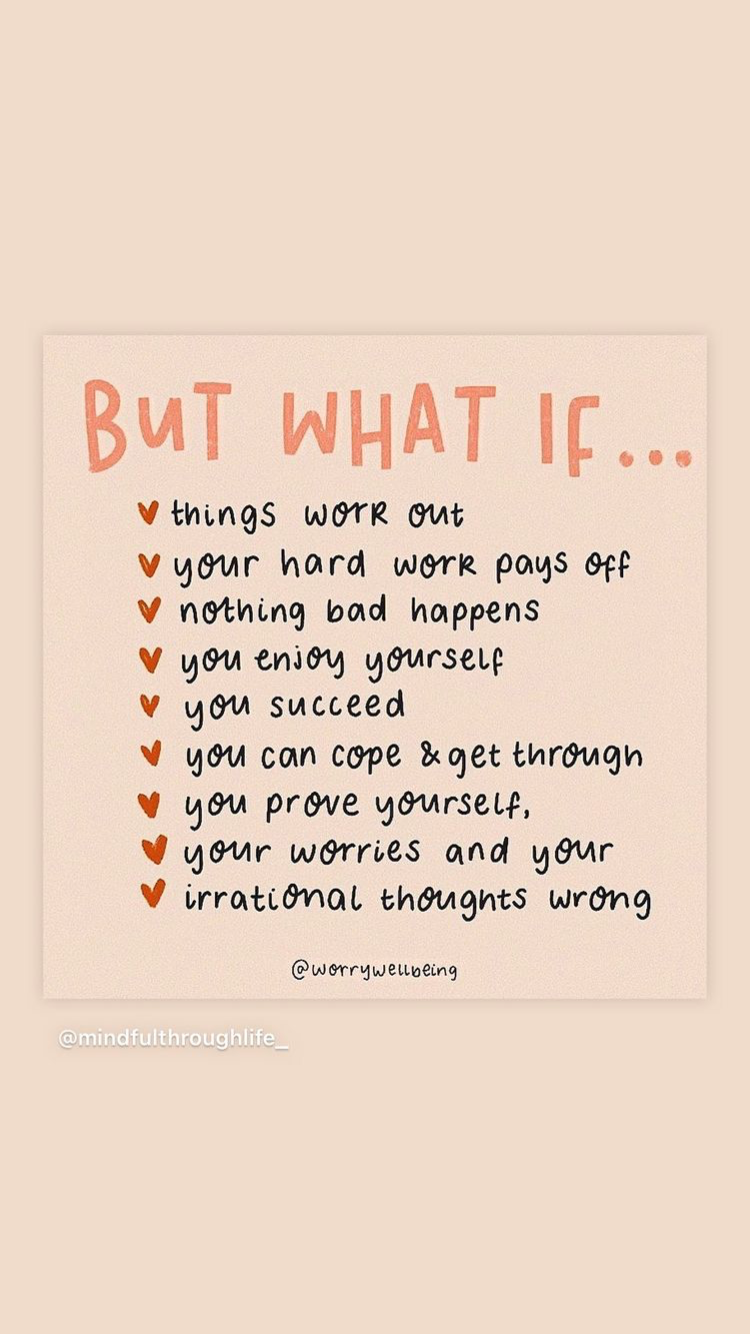 BUT WHAT IF...
things work out
your hard work pays off
nothing bad happens
you enjoy yourself
you succeed
you can cope & get through
you prove yourself,
your worries and your
irrational thoughts wrong
@worrywellbeing
@mindfulthroughlife_